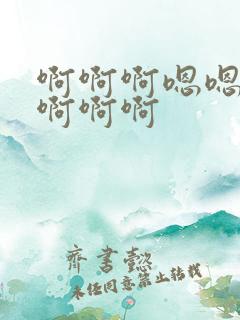 啊啊啊嗯嗯
啊啊啊
齐书懿
未经同意禁止转载